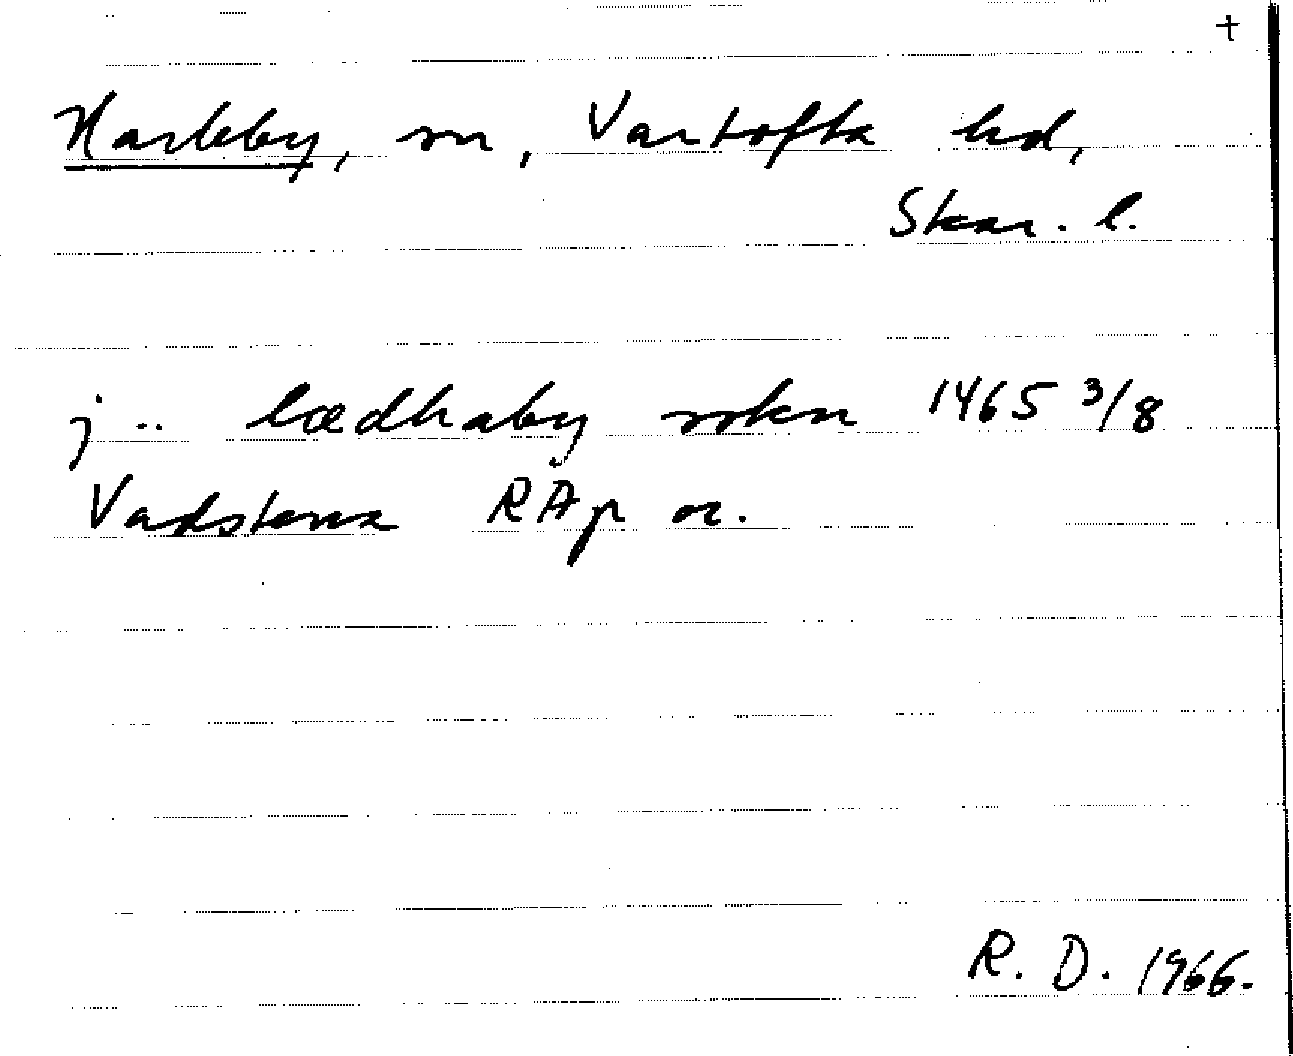 +
Karleby, sn, Vartofta hd,
Skar. l.
j .. lædhaby sokn 1465 3/8
Vadstena RAp or.
R. D. 1966.